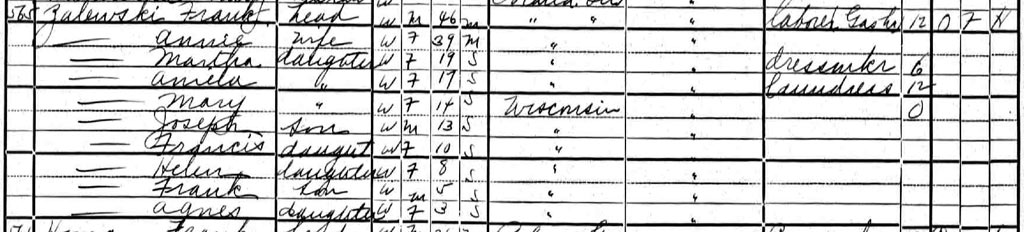 565 Zalewski Frank head W M 46 M " " " laborer Gas Wks 12 O F H
— Annie wife W F 39 M " "
— Martha daughter W F 19 S " " dressmkr 6
— Amelia " W F 17 S " " laundress 12
— Mary " W F 14 S Wisconsin " 0
— Joseph son W M 13 S " "
— Francis daught W F 10 S "
— Helen daughter W F 8 S " "
— Frank son W M 5 S " "
— Agnes daughter W F 3 S " "
Frank